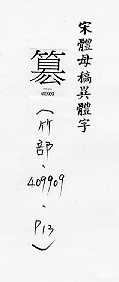 宋體母稿異體字
篡
(竹部、40909、P13)